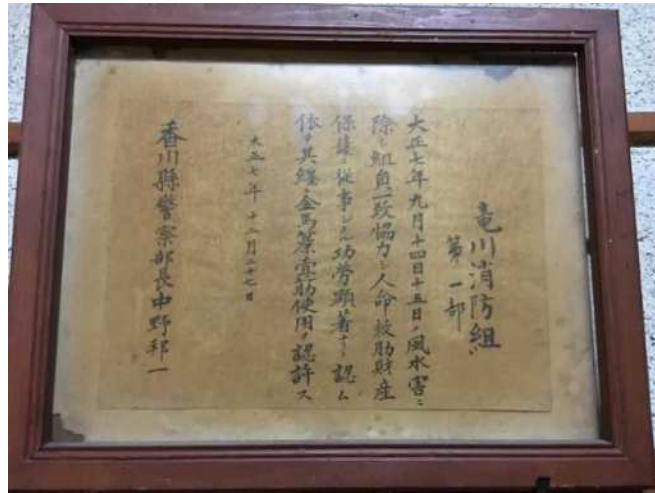 竜川消防組
第一部
大正七年九月十四日十五日ノ風水害ニ
際シ組員一致協力シ人命救助財産
保護ニ従事シタル功労顕著ナリト認ム
依テ其纏ニ金馬簾壹肋使用ヲ認許ス
大正七年十二月二十七日
香川縣警察部長中野邦一